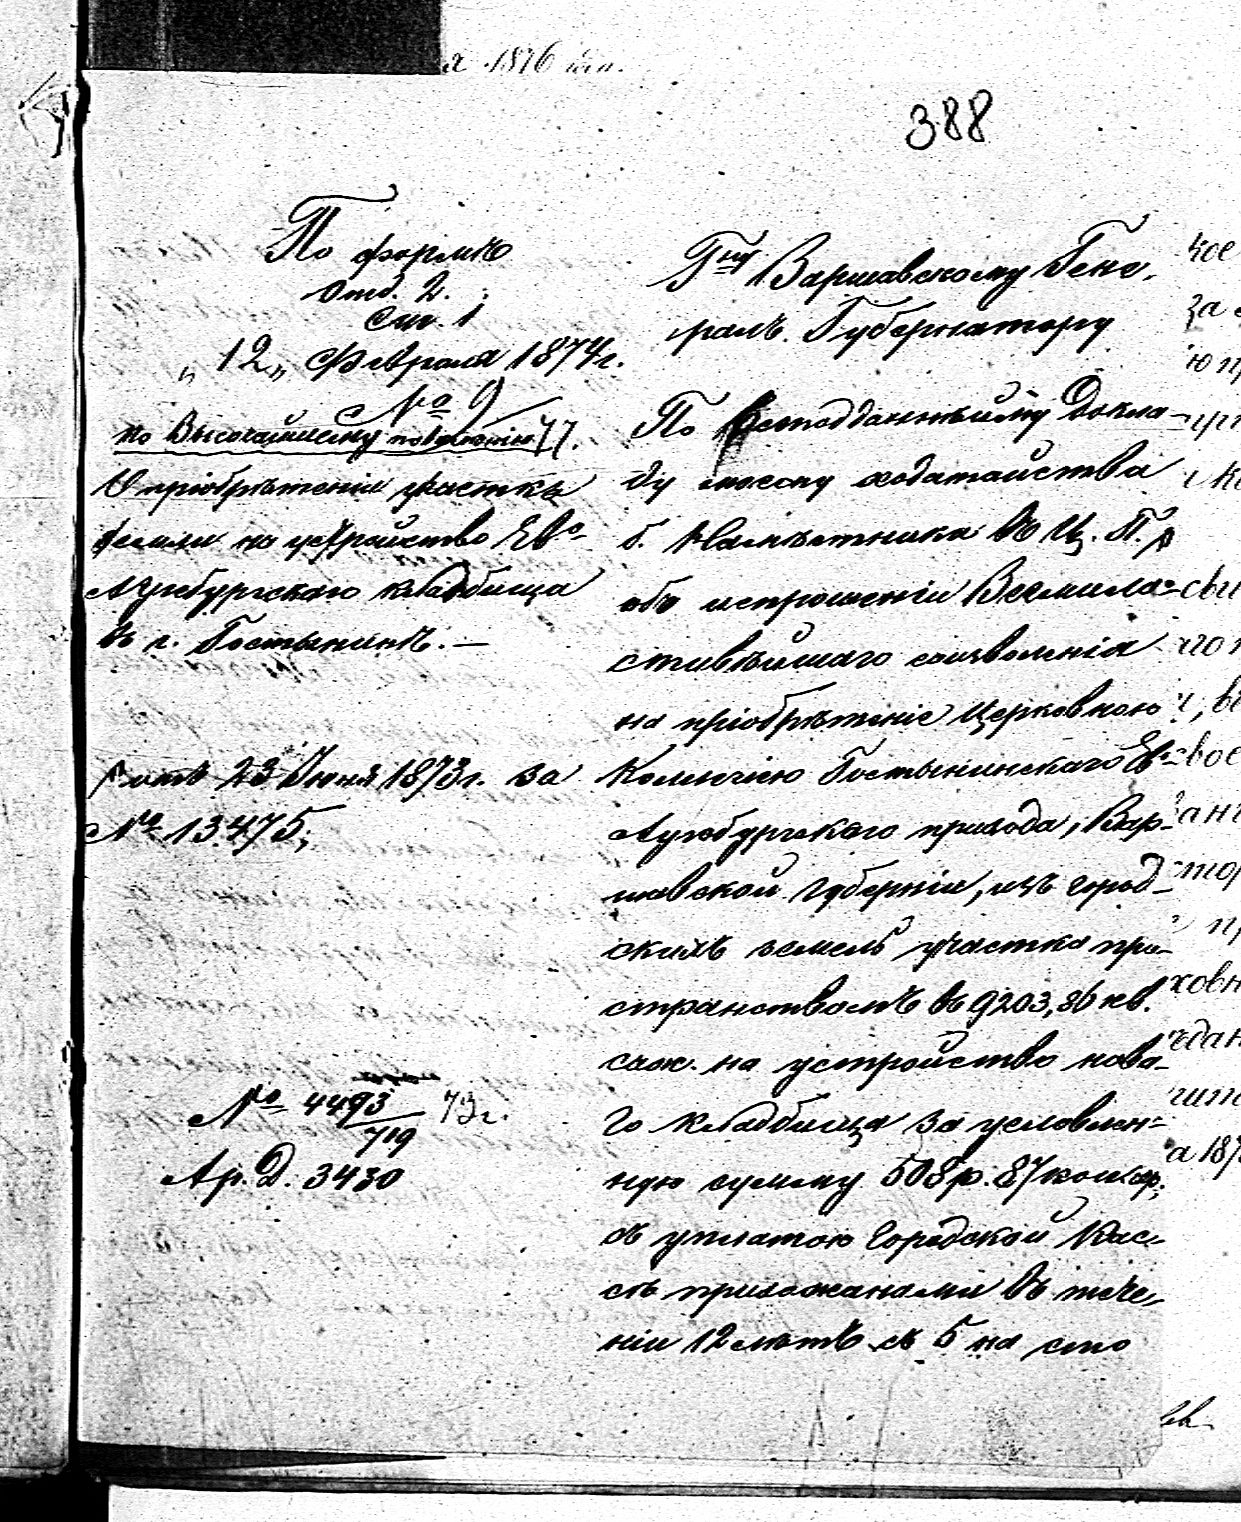 1876 года.
388
По формѣ
Отд. 2.
Ст. 1
„ 12 „ Февраля 1874 г.
№ 9
по Высочайшему повелѣнію 77.
О пріобрѣтеніи участка
земли на устройство Ев°-
Аугсбургскаго кладбища
въ г. Гостынинѣ. —
отъ 23 Іюня 1873 г. за
№ 13475;
№ 4493/719 73 г.
Ар. Д. 3430
Гну Варшавскому Гене-
ралъ-Губернатору
По Всеподданнѣйшему Докла-
ду моему ходатайства
б. Намѣстника въ Ц. П.
объ испрошеніи Всемило-
стивѣйшаго соизволенія
на пріобрѣтеніе Церковною
Коллегіею Гостынинскаго Ев°-
Аугсбургскаго прихода, Вар-
шавской губерніи, изъ город-
скихъ земель участка про-
странствомъ въ 9203,86 кв.
саж. на устройство нова-
го кладбища за условлен-
ную сумму 508 р. 87 коп. сер.
съ уплатою Городской Кас-
сѣ прихожанами въ тече-
ніи 12 лѣтъ съ 5 на сто